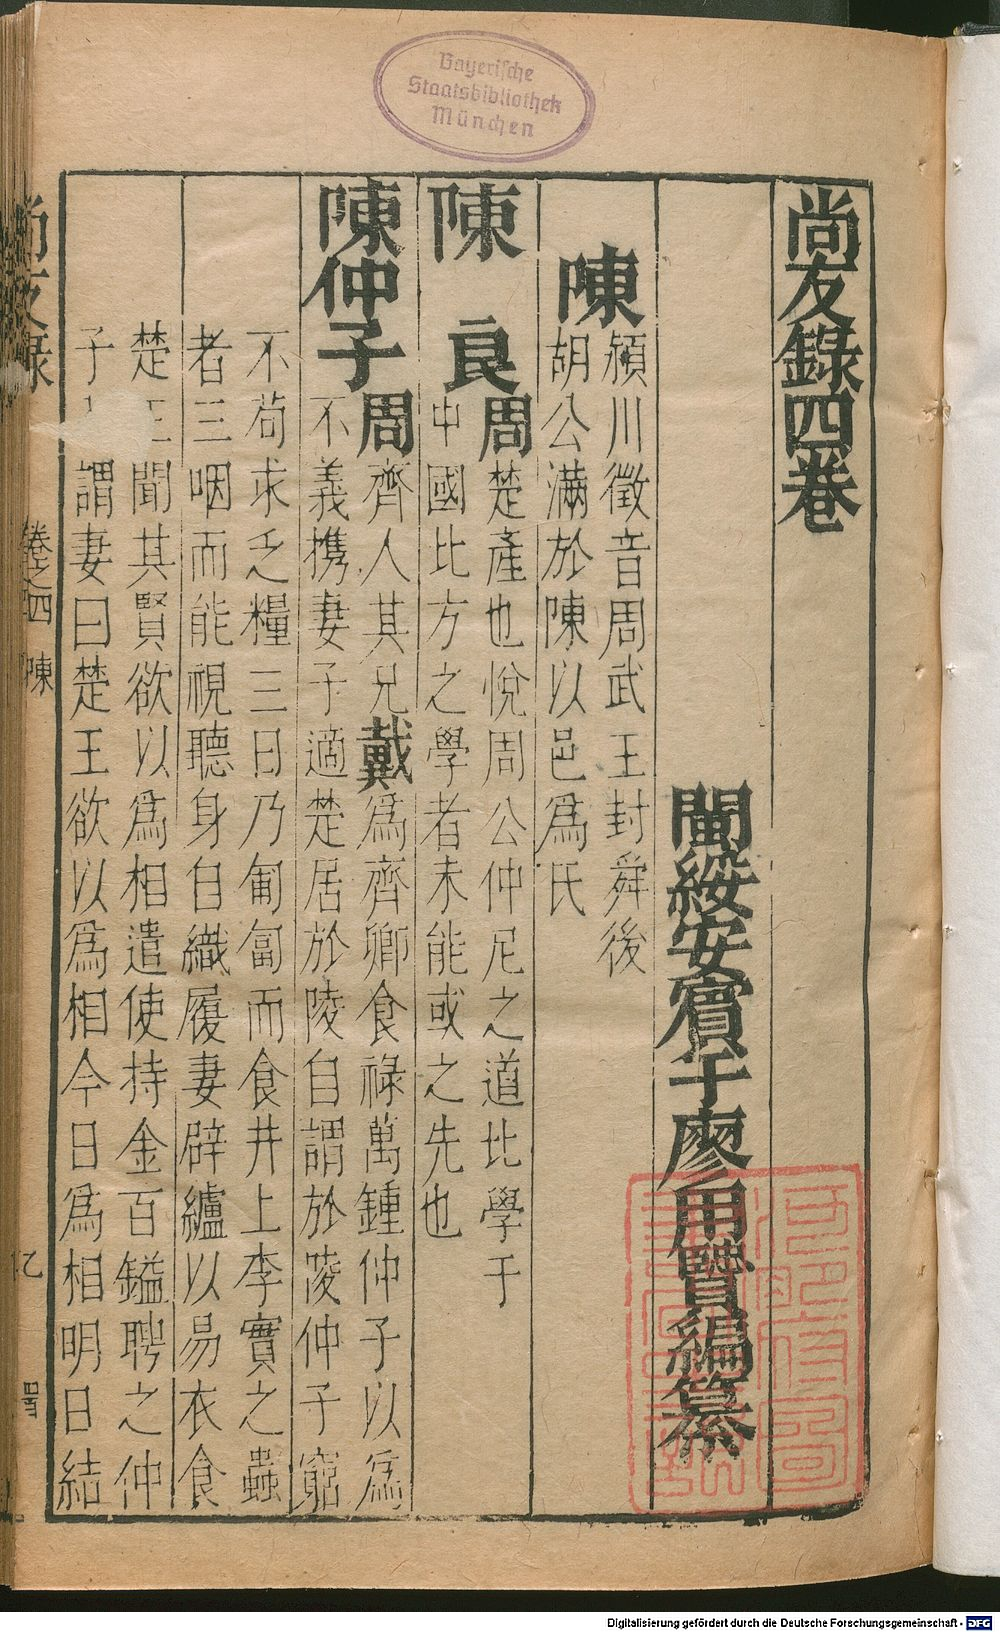 Bayerische
Staatsbibliothek
München
尚友錄四卷
閩綏安賓于廖用賢編纂
陳
潁川徵音周武王封舜後
胡公滿於陳以邑爲氏
陳良
周楚產也悅周公仲尼之道比學于
中國比方之學者未能或之先也
陳仲子
周齊人其兄戴爲齊卿食祿萬鍾仲子以爲
不義携妻子適楚居於陵自謂於陵仲子窮
不苟求乏糧三日乃匍匐而食井上李實之蟲
者三咽而能視聽身自織履妻辟纑以易衣食
楚王聞其賢欲以爲相遣使持金百鎰聘之仲
子謂妻曰楚王欲以爲相今日爲相明日結
尚友錄
卷之四 陳
乙
Digitalisierung gefördert durch die Deutsche Forschungsgemeinschaft - DFG